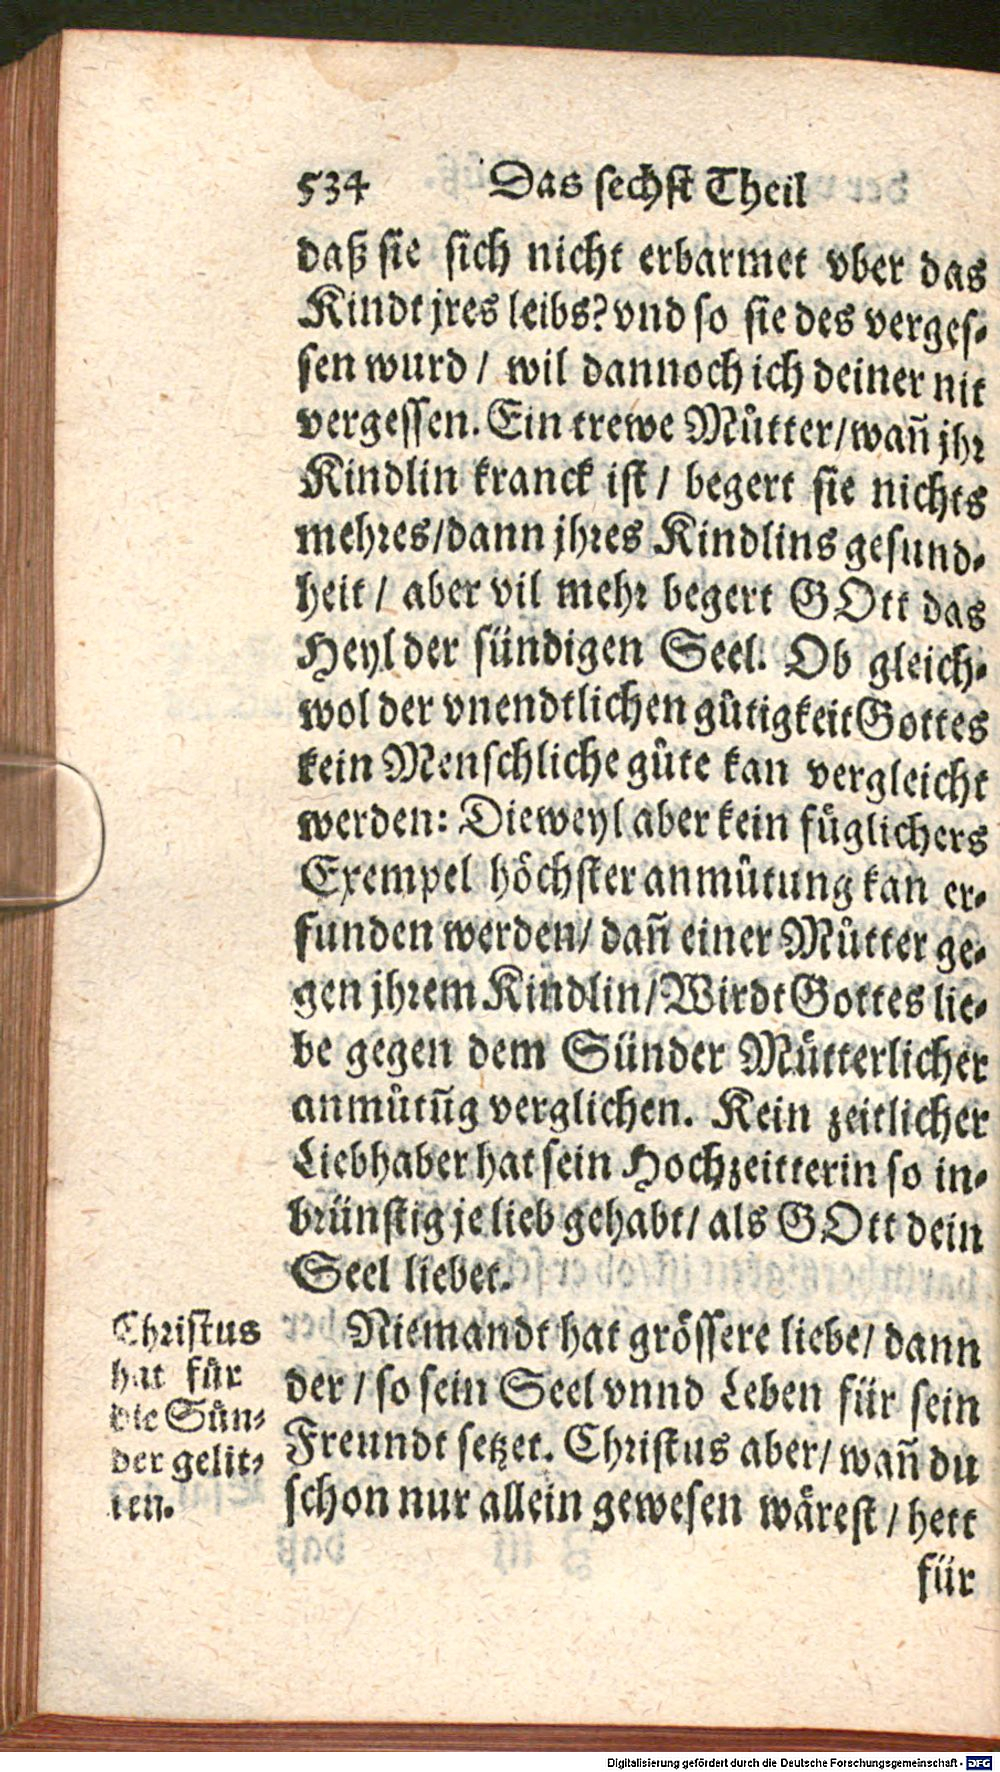 534 Das sechst Theil
daß sie sich nicht erbarmet vber das
Kindt jres leibs? vnd so sie des verges-
sen wurd / wil dannoch ich deiner nit
vergessen. Ein trewe Můtter / wañ jhr
Kindlin kranck ist / begert sie nichts
mehres / dann jhres Kindlins gesund-
heit / aber vil mehr begert GOtt das
Heyl der sündigen Seel. Ob gleich-
wol der vnendtlichen gůtigkeit Gottes
kein Menschliche gůte kan vergleicht
werden: Dieweyl aber kein fůglichers
Exempel höchster anmůtung kan er-
funden werden / dañ einer Můtter ge-
gen jhrem Kindlin / Wirdt Gottes lie-
be gegen dem Sünder Můtterlicher
anmůtũg verglichen. Kein zeitlicher
Liebhaber hat sein Hochzeitterin so in-
brünstig je lieb gehabt / als GOtt dein
Seel liebet.
Christus
hat für
die Sün-
der gelit-
ten.
Niemandt hat grössere liebe / dann
der / so sein Seel vnnd Leben für sein
Freundt setzet. Christus aber / wañ du
schon nur allein gewesen wärest / hett
für
Digitalisierung gefördert durch die Deutsche Forschungsgemeinschaft - DFG